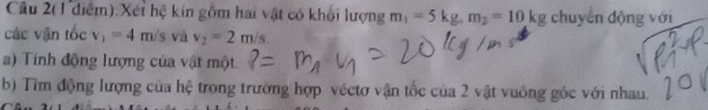 Câu 2(1 điểm):Xét hệ kín gồm hai vật có khối lượng m₁ = 5 kg, m₂ = 10 kg chuyển động với
các vận tốc v₁ = 4 m/s và v₂ = 2 m/s.
a) Tính động lượng của vật một. P = m₁ v₁ = 20 kg/ms
b) Tìm động lượng của hệ trong trường hợp véctơ vận tốc của 2 vật vuông góc với nhau. 20